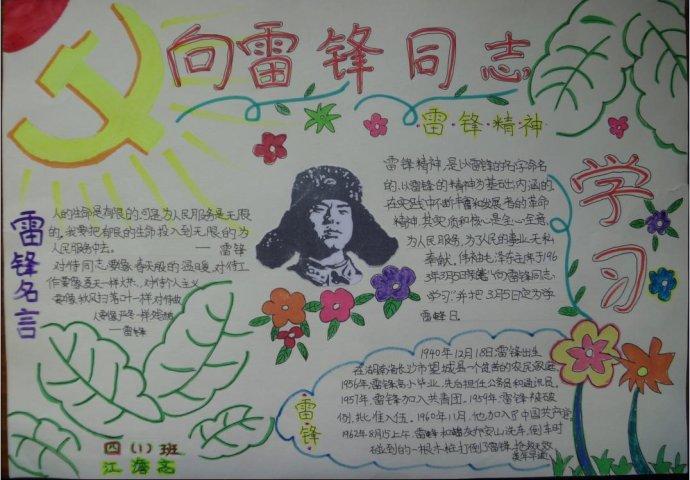 向雷锋同志
学习
雷锋精神
雷锋精神,是以雷锋的名字命名
的,以雷锋的精神为基础内涵的,
在实践中不断丰富和发展着的革命
精神,其实质和核心是全心全意
为人民服务,为了人民的事业无私
奉献。伟大领袖毛泽东主席于196
3年3月5日"向雷锋同志
学习"并把3月5日定为学
雷锋日。
雷锋名言
人的生命是有限的,可是为人民服务是无限
的,我要把有限的生命投入到无限的为
人民服务中去。
——雷锋
对待同志要像春天般的温暖,对待工
作要像夏天一样火热,对待个人主义
要像秋风扫落叶一样,对待敌
人要像严冬一样残酷
—雷锋
雷锋
1940年12月18日雷锋出生
在湖南省长沙市望城县一个贫苦的农民家庭
1956年雷锋高小毕业,先后担任公务员和通讯员,
1957年,雷锋加入共青团。1959年,雷锋被破
例批准入伍。1960年11月,他加入了中国共产党
1962年8月15上午,雷锋和战友乔安山洗车,倒车时
碰到的一根木桩打倒了雷锋,抢救无效
四(1)班
江